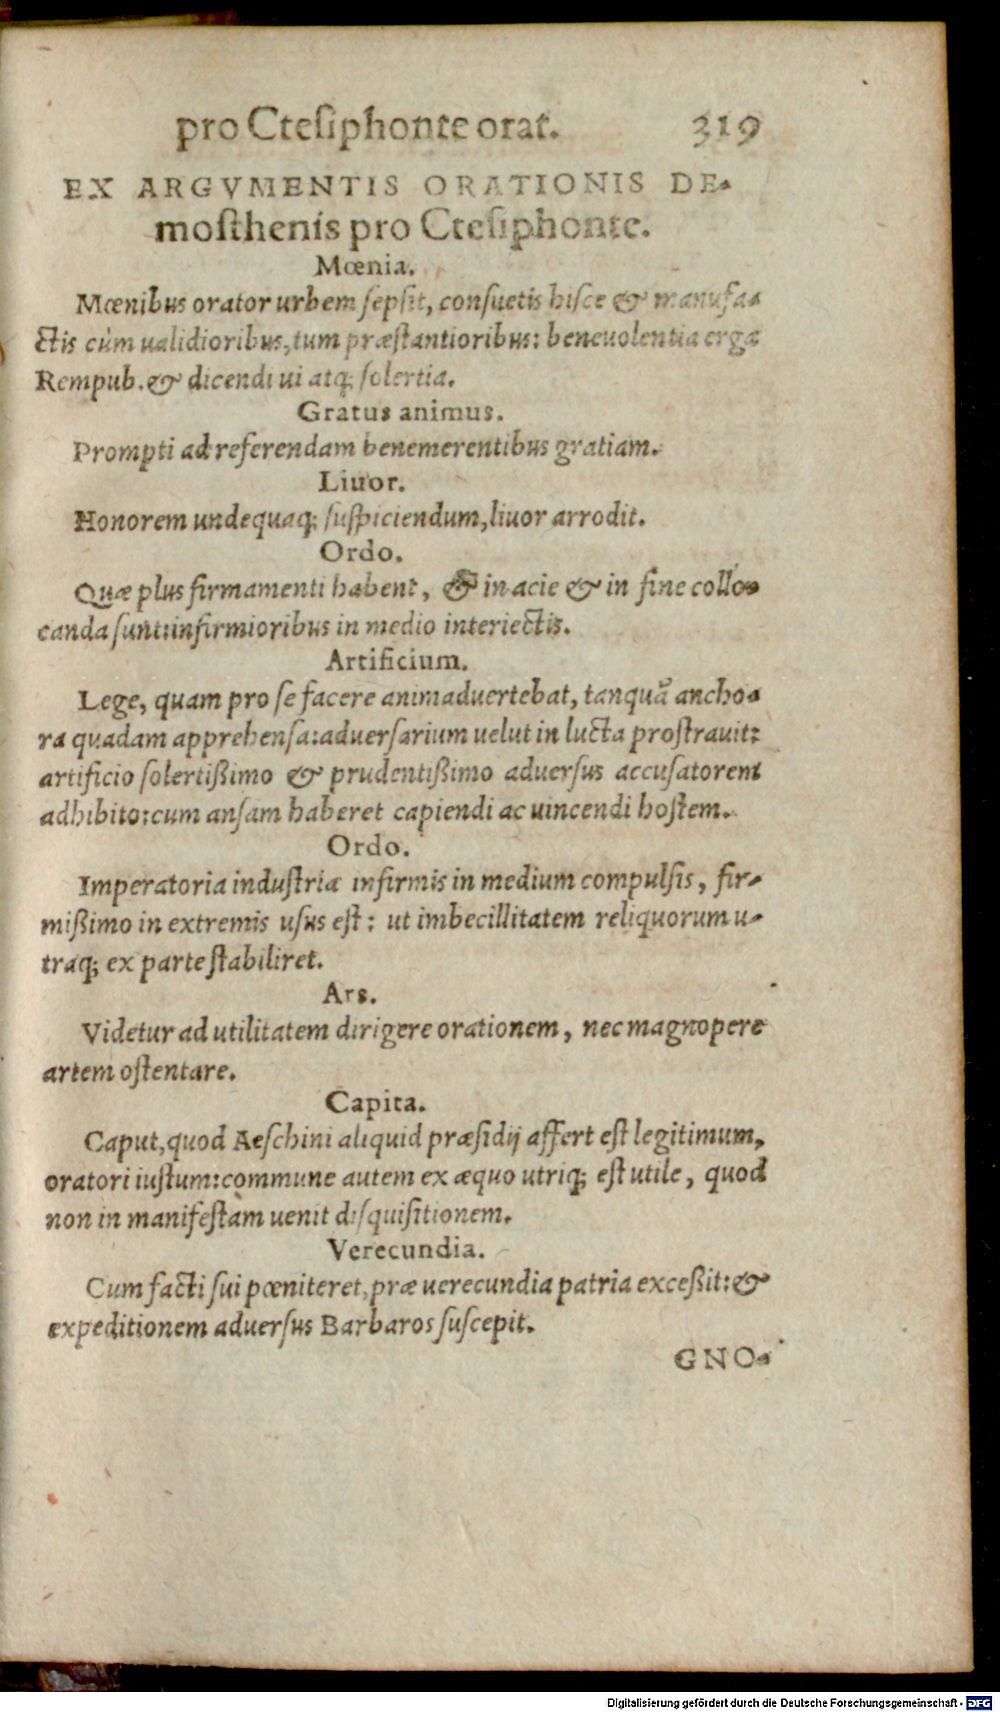 pro Cteſiphonte orat. 319
EX ARGVMENTIS ORATIONIS DE-
moſthenis pro Cteſiphonte.
Mœnia.
Mœnibus orator urbem ſepſit, conſuetis hiſce & manufa-
ctis cùm ualidioribus, tum præſtantioribus: beneuolentia erga
Rempub. & dicendi ui atq; ſolertia.
Gratus animus.
Prompti ad referendam benemerentibus gratiam.
Liuor.
Honorem undequaq; ſuſpiciendum, liuor arrodit.
Ordo.
Quæ plus firmamenti habent, & in acie & in fine collo-
canda ſunt: infirmioribus in medio interiectis.
Artificium.
Lege, quam pro ſe facere animaduertebat, tanquã ancho-
ra quadam apprehenſa: aduerſarium uelut in lucta proſtrauit:
artificio ſolertißimo & prudentißimo aduerſus accuſatorem
adhibito: cum anſam haberet capiendi ac uincendi hoſtem.
Ordo.
Imperatoria induſtria infirmis in medium compulſis, fir-
mißimo in extremis uſus eſt: ut imbecillitatem reliquorum u-
traq; ex parte ſtabiliret.
Ars.
Videtur ad utilitatem dirigere orationem, nec magnopere
artem oſtentare.
Capita.
Caput, quod Aeſchini aliquid præſidij affert eſt legitimum,
oratori iuſtum: commune autem ex æquo utriq; eſt utile, quod
non in manifeſtam uenit diſquiſitionem.
Verecundia.
Cum facti ſui pœniteret, præ uerecundia patria exceßit: &
expeditionem aduerſus Barbaros ſuſcepit.
GNO-
Digitalisierung gefördert durch die Deutsche Forschungsgemeinschaft - DFG